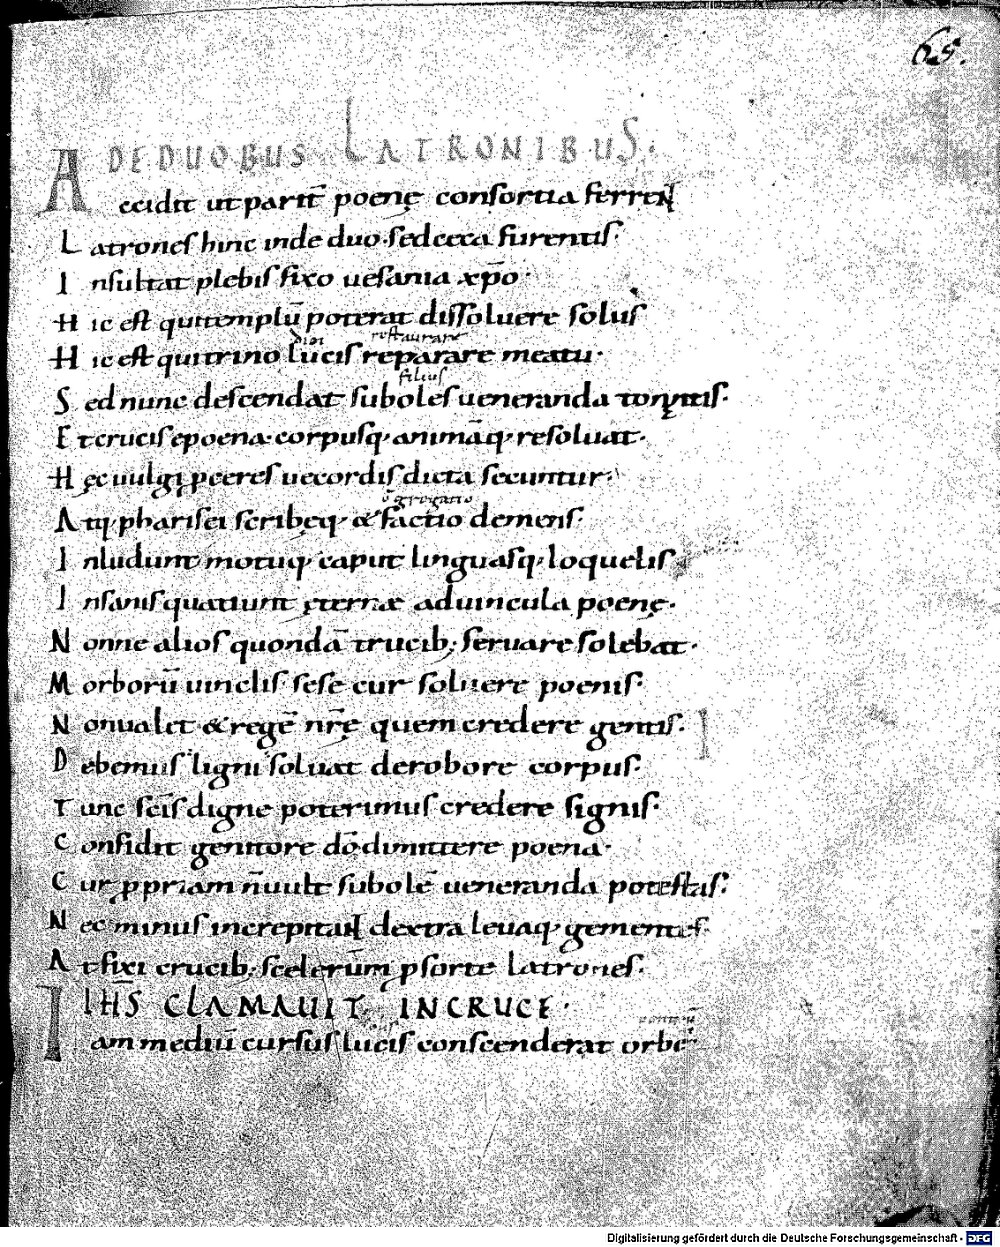 65.
DE DUOBUS LATRONIBUS.
Accidit ut parit̄ poenę consortia ferrent
Latrones hinc inde duo· sed cęca furentis·
Insultat plebis fixo uesania xp̄o·
Hic est qui templū poterat dissoluere solus
diei restaurare
Hic est qui trino lucis reparare meatu·
filius
Sed nunc descendat suboles ueneranda tonantis·
Et crucis e poena· corpusq; animāq; resoluat·
Hęc uulgi pceres uecordis dicta secuntur·
Atq; pharisei scribęq; & factio demens·
Inludunt motuq; caput linguasq; loquelis
Insanis quatiunt ęternæ ad uincula poenę·
Nonne alios quondā trucib; seruare solebat·
Morborū uinclis sese cur soluere poenis·
Non ualet & regē nr̄ę quem credere gentis·
Debemus ligni soluat de robore corpus·
Tunc sc̄is digne poterimus credere signis·
Confidit genitore dō dimittere poena·
Cur ppriam n̄ uult subolē ueneranda potestas·
Nec minus increpitant dextra leuaq; gementes·
Atfixi crucib; scelerum p sorte latrones·
IHS̄ CLAMAUIT IN CRUCE·
Iam mediū cursus lucis conscenderat orbē
Digitalisierung gefördert durch die Deutsche Forschungsgemeinschaft - DFG